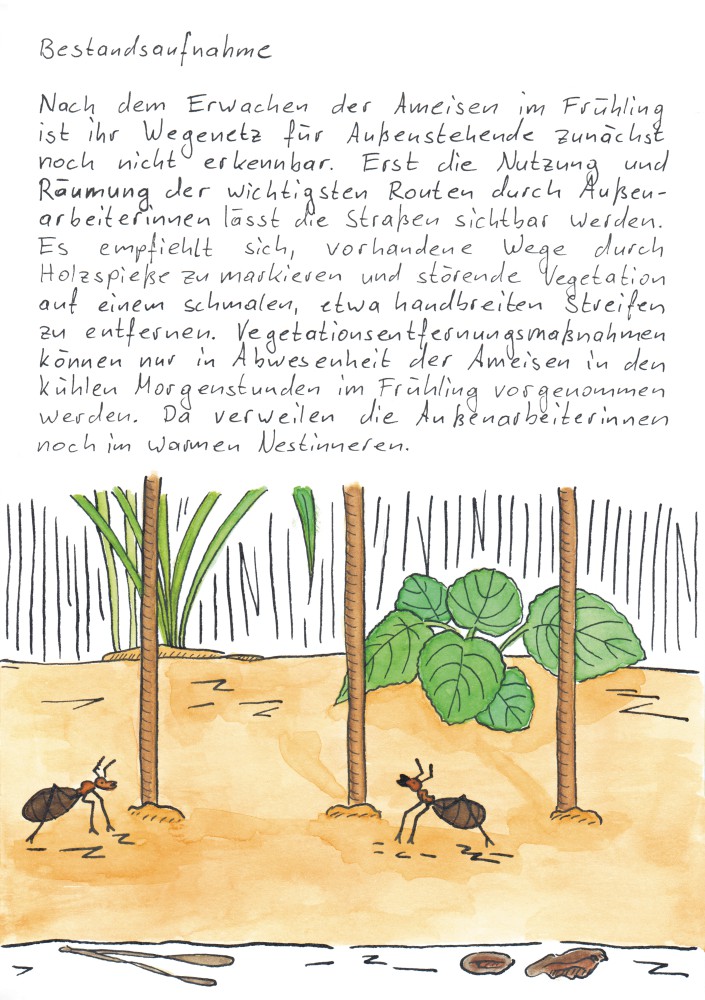 Bestandsaufnahme
Nach dem Erwachen der Ameisen im Frühling
ist ihr Wegenetz für Außenstehende zunächst
noch nicht erkennbar. Erst die Nutzung und
Räumung der wichtigsten Routen durch Außen-
arbeiterinnen lässt die Straßen sichtbar werden.
Es empfiehlt sich, vorhandene Wege durch
Holzspieße zu markieren und störende Vegetation
auf einem schmalen, etwa handbreiten Streifen
zu entfernen. Vegetationsentfernungsmaßnahmen
können nur in Abwesenheit der Ameisen in den
kühlen Morgenstunden im Frühling vorgenommen
werden. Da verweilen die Außenarbeiterinnen
noch im warmen Nestinneren.